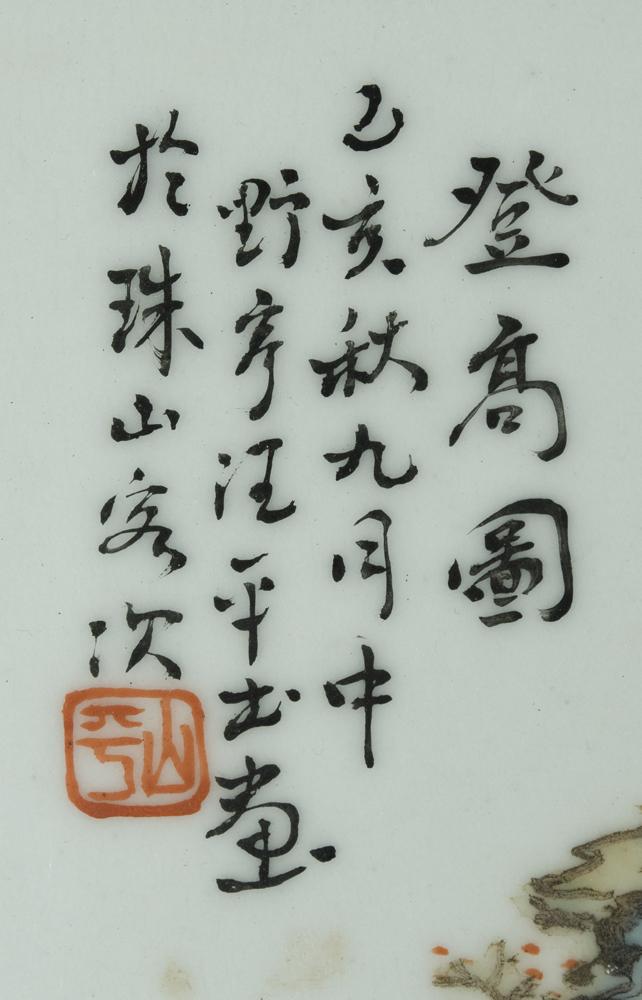 登高圖
乙亥秋九月中
野亭汪平畫
於珠山客次